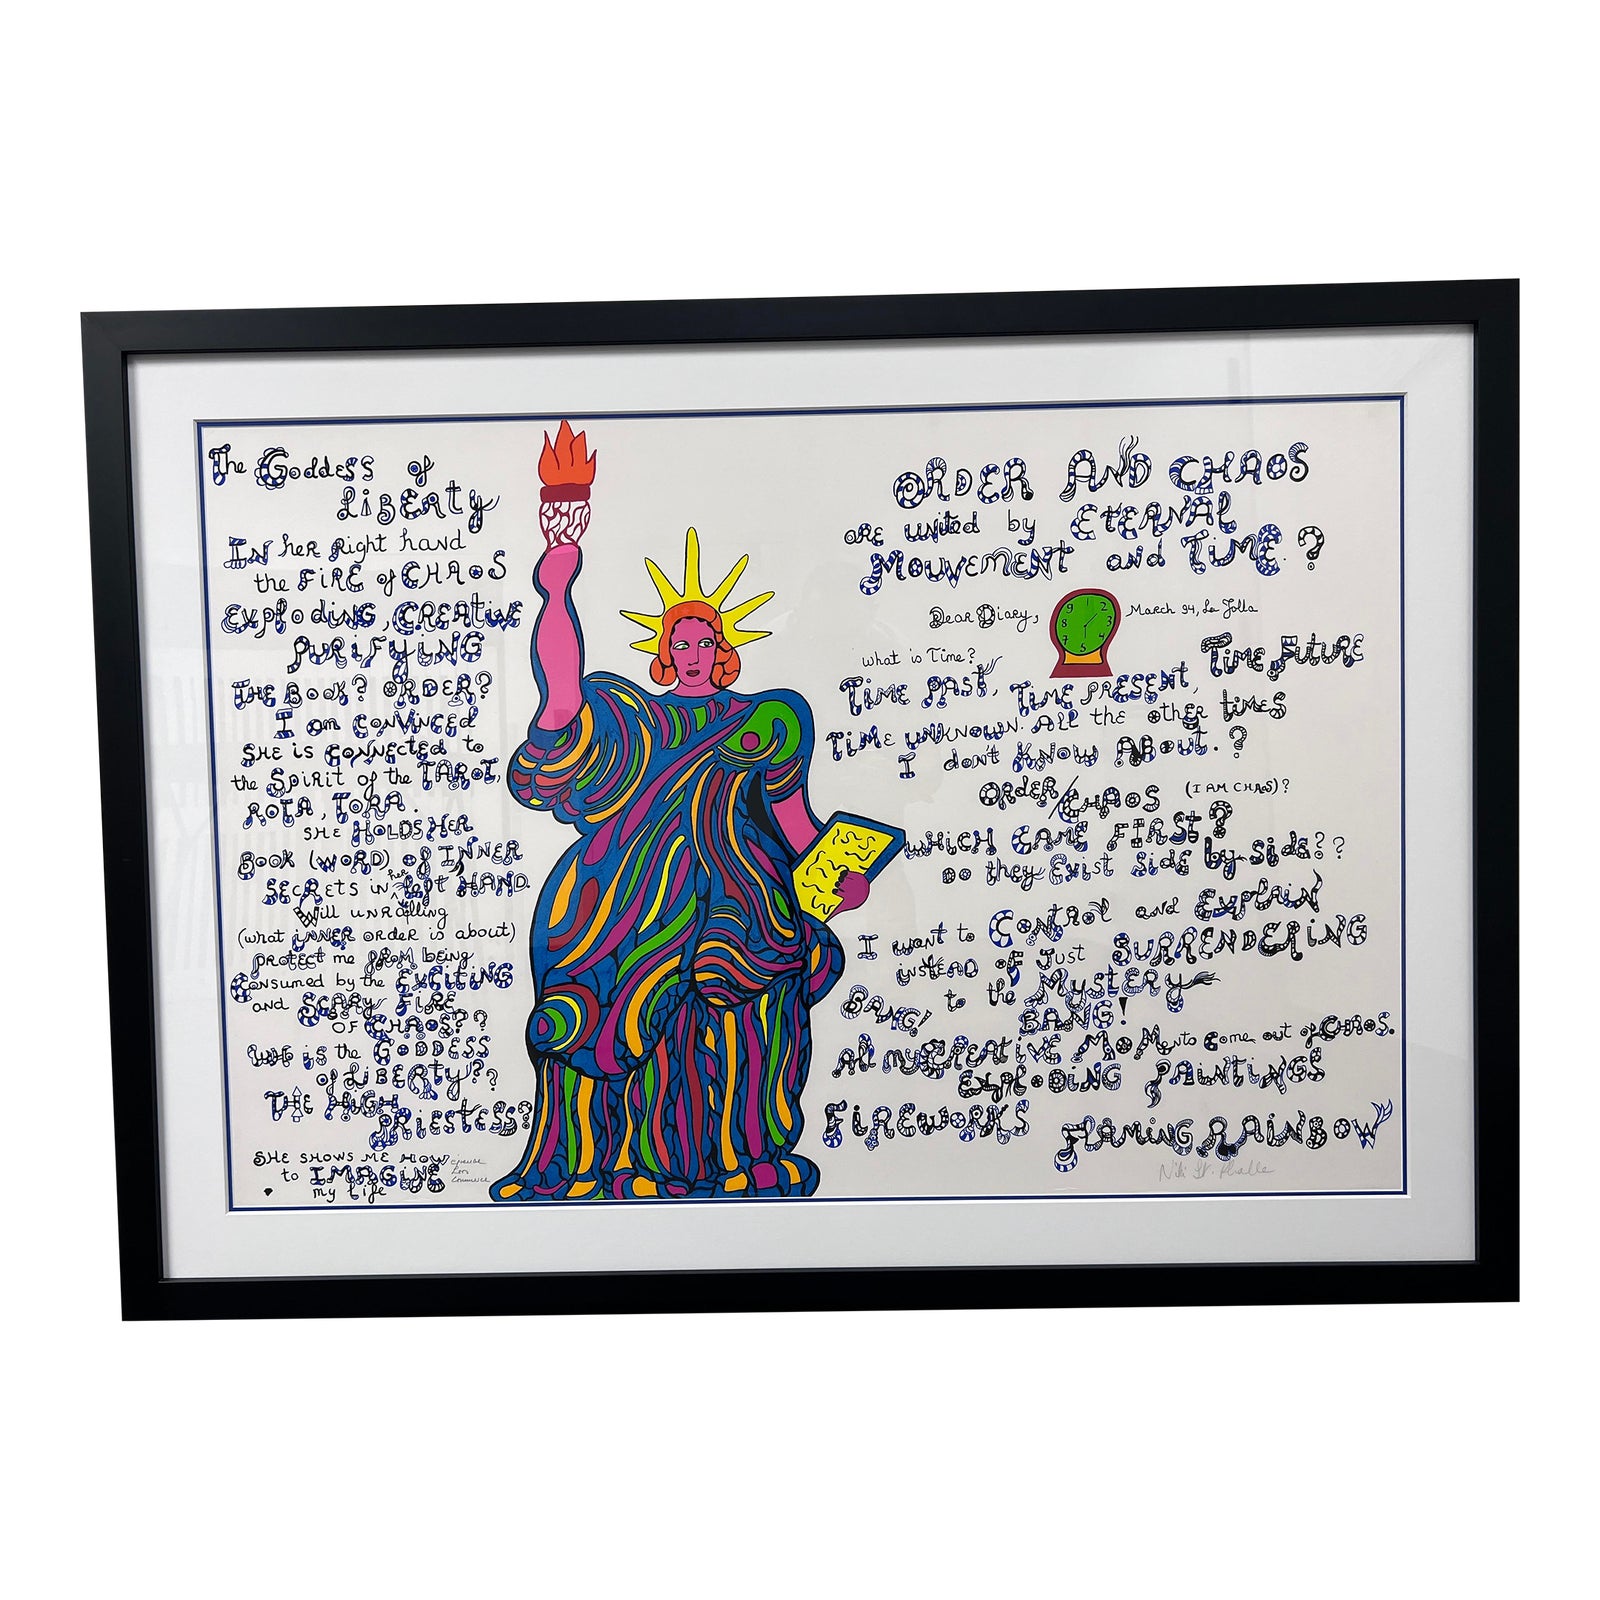 The Goddess of
LIBERTY
IN her right hand
the FIRE of CHAOS
Exploding, CREATIVE
PURIFYING
THE BOOK? ORDER?
I am CONVINCED
SHE is CONNECTED to
the Spirit of the TAROT,
ROTA, TORA.
SHE HOLDS HER
BOOK (WORD) of INNER
SECRETS in her left HAND.
Will unrolling
(what INNER ORDER is about)
PROTECT me FROM being
Consumed by the EXCITING
and SCARY FIRE
OF CHAOS??
WHO is the GODDESS
of LIBERTY??
THE HIGH
PRIESTESS?
SHE SHOWS ME HOW
to IMAGINE
my life
épreuve
hors
commerce
ORDER AND CHAOS
are united by ETERNAL
MOUVEMENT and TIME?
Dear Diary,
March 94, La Jolla
9 2
8 3
7 4
5
what is Time?
TIME PAST, TIME PRESENT, TIME FUTURE
TIME UNKNOWN. All the other times
I don't KNOW ABOUT.?
ORDER/CHAOS (I AM CHAOS)?
WHICH CAME FIRST?
OO they EXIST side by side??
I want to CONTROL and EXPLAIN
instEAD OF Just SURRENDERING
to the MYSTERY
BANG! BANG!
All my CREATIVE MOMENTS come out of CHAOS.
EXPLODING PAINTINGS
FIREWORKS FLAMING RAINBOW
Niki St. Phalle